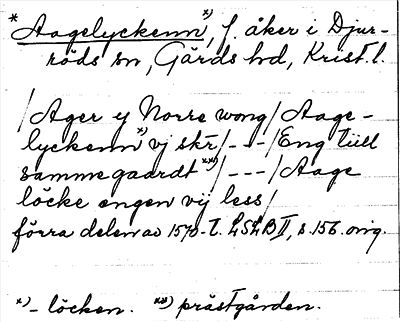 * Aagelyckenn *), f. åker i Djur-
röds sn, Gärds hd, Krist. l.
/Ager y Norre wong/Aage-
lyckenn *) vj skr/---/Eng tiill
samme gaardt **)/---/Aage
löcke engen vij less/
förra delen av 1570-t. LSLB II, s. 156. orig.
*) - löcken. **) prästgården.